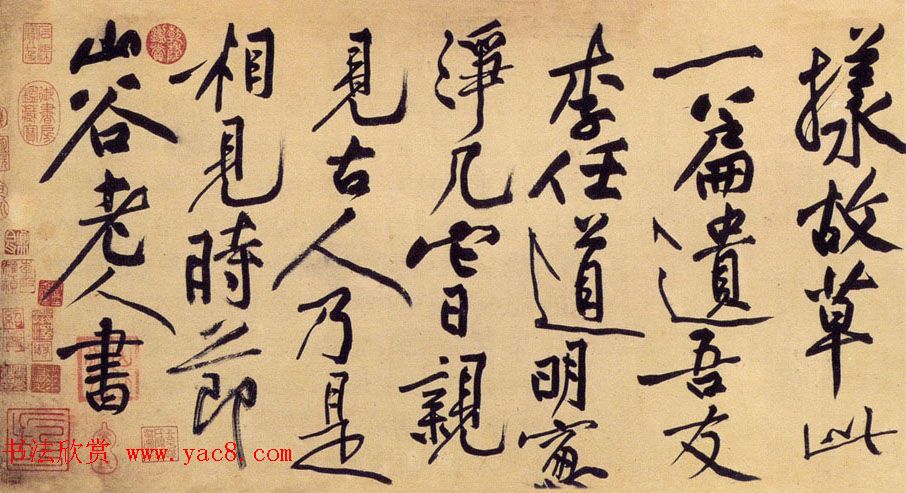 樣故草此
一篇遺吾友
李任道明窓
淨几它日親
見古人乃是
相見時節
山谷老人書
书法欣赏 www.yac8.com